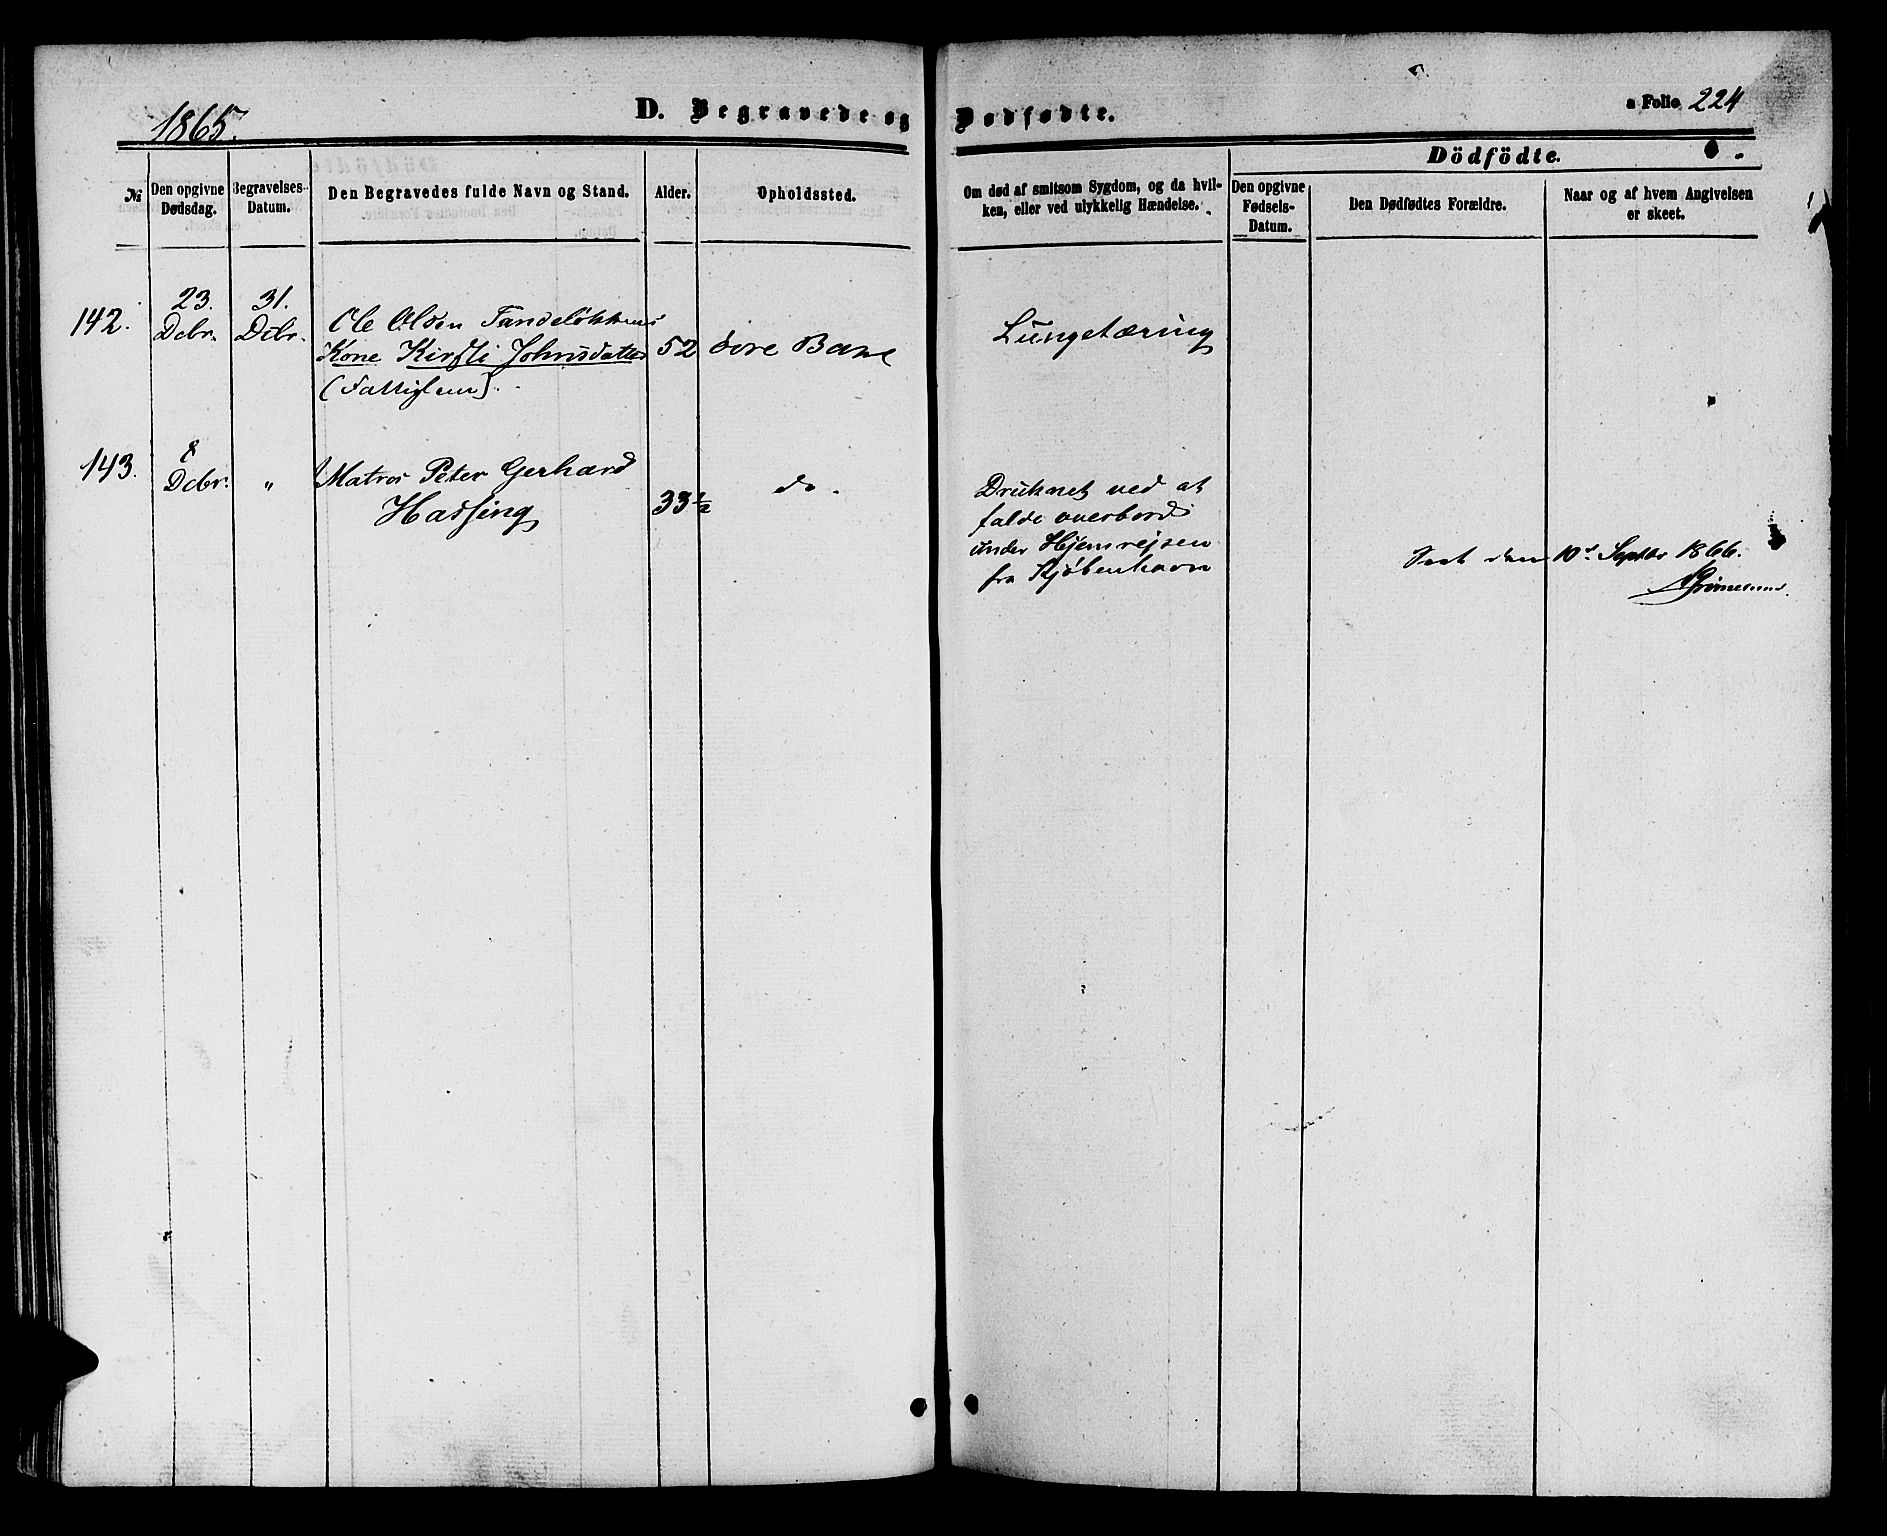 1865.
D. Begravede og Dødfødte.
a Folio 224
№
Den opgivne Dødsdag.
Begravelses-Datum.
Den Begravedes fulde Navn og Stand.
Alder.
Opholdssted.
Om død af smitsom Sygdom, og da hvil-
ken, eller ved ulykkelig Hændelse.
Dödfödte.
Den opgivne Fødsels-Datum.
Den Dødfødtes Forældre.
Naar og af hvem Angivelsen
er skeet.
142.
23. Dcbr.
31. Dcbr.
Ole Olsen Tandeløkkens
Kone Kirsti Johnsdatter
(Fattiglem).
52
Lungetæring
143.
8 Dcbr.
"
Matros Peter Gerhard
Hassing
33 1/2
do.
Druknet ved at
falde overbord
under Hjemrejsen
fra Kjøbenhavn
Seet den 10d Septbr 1866.